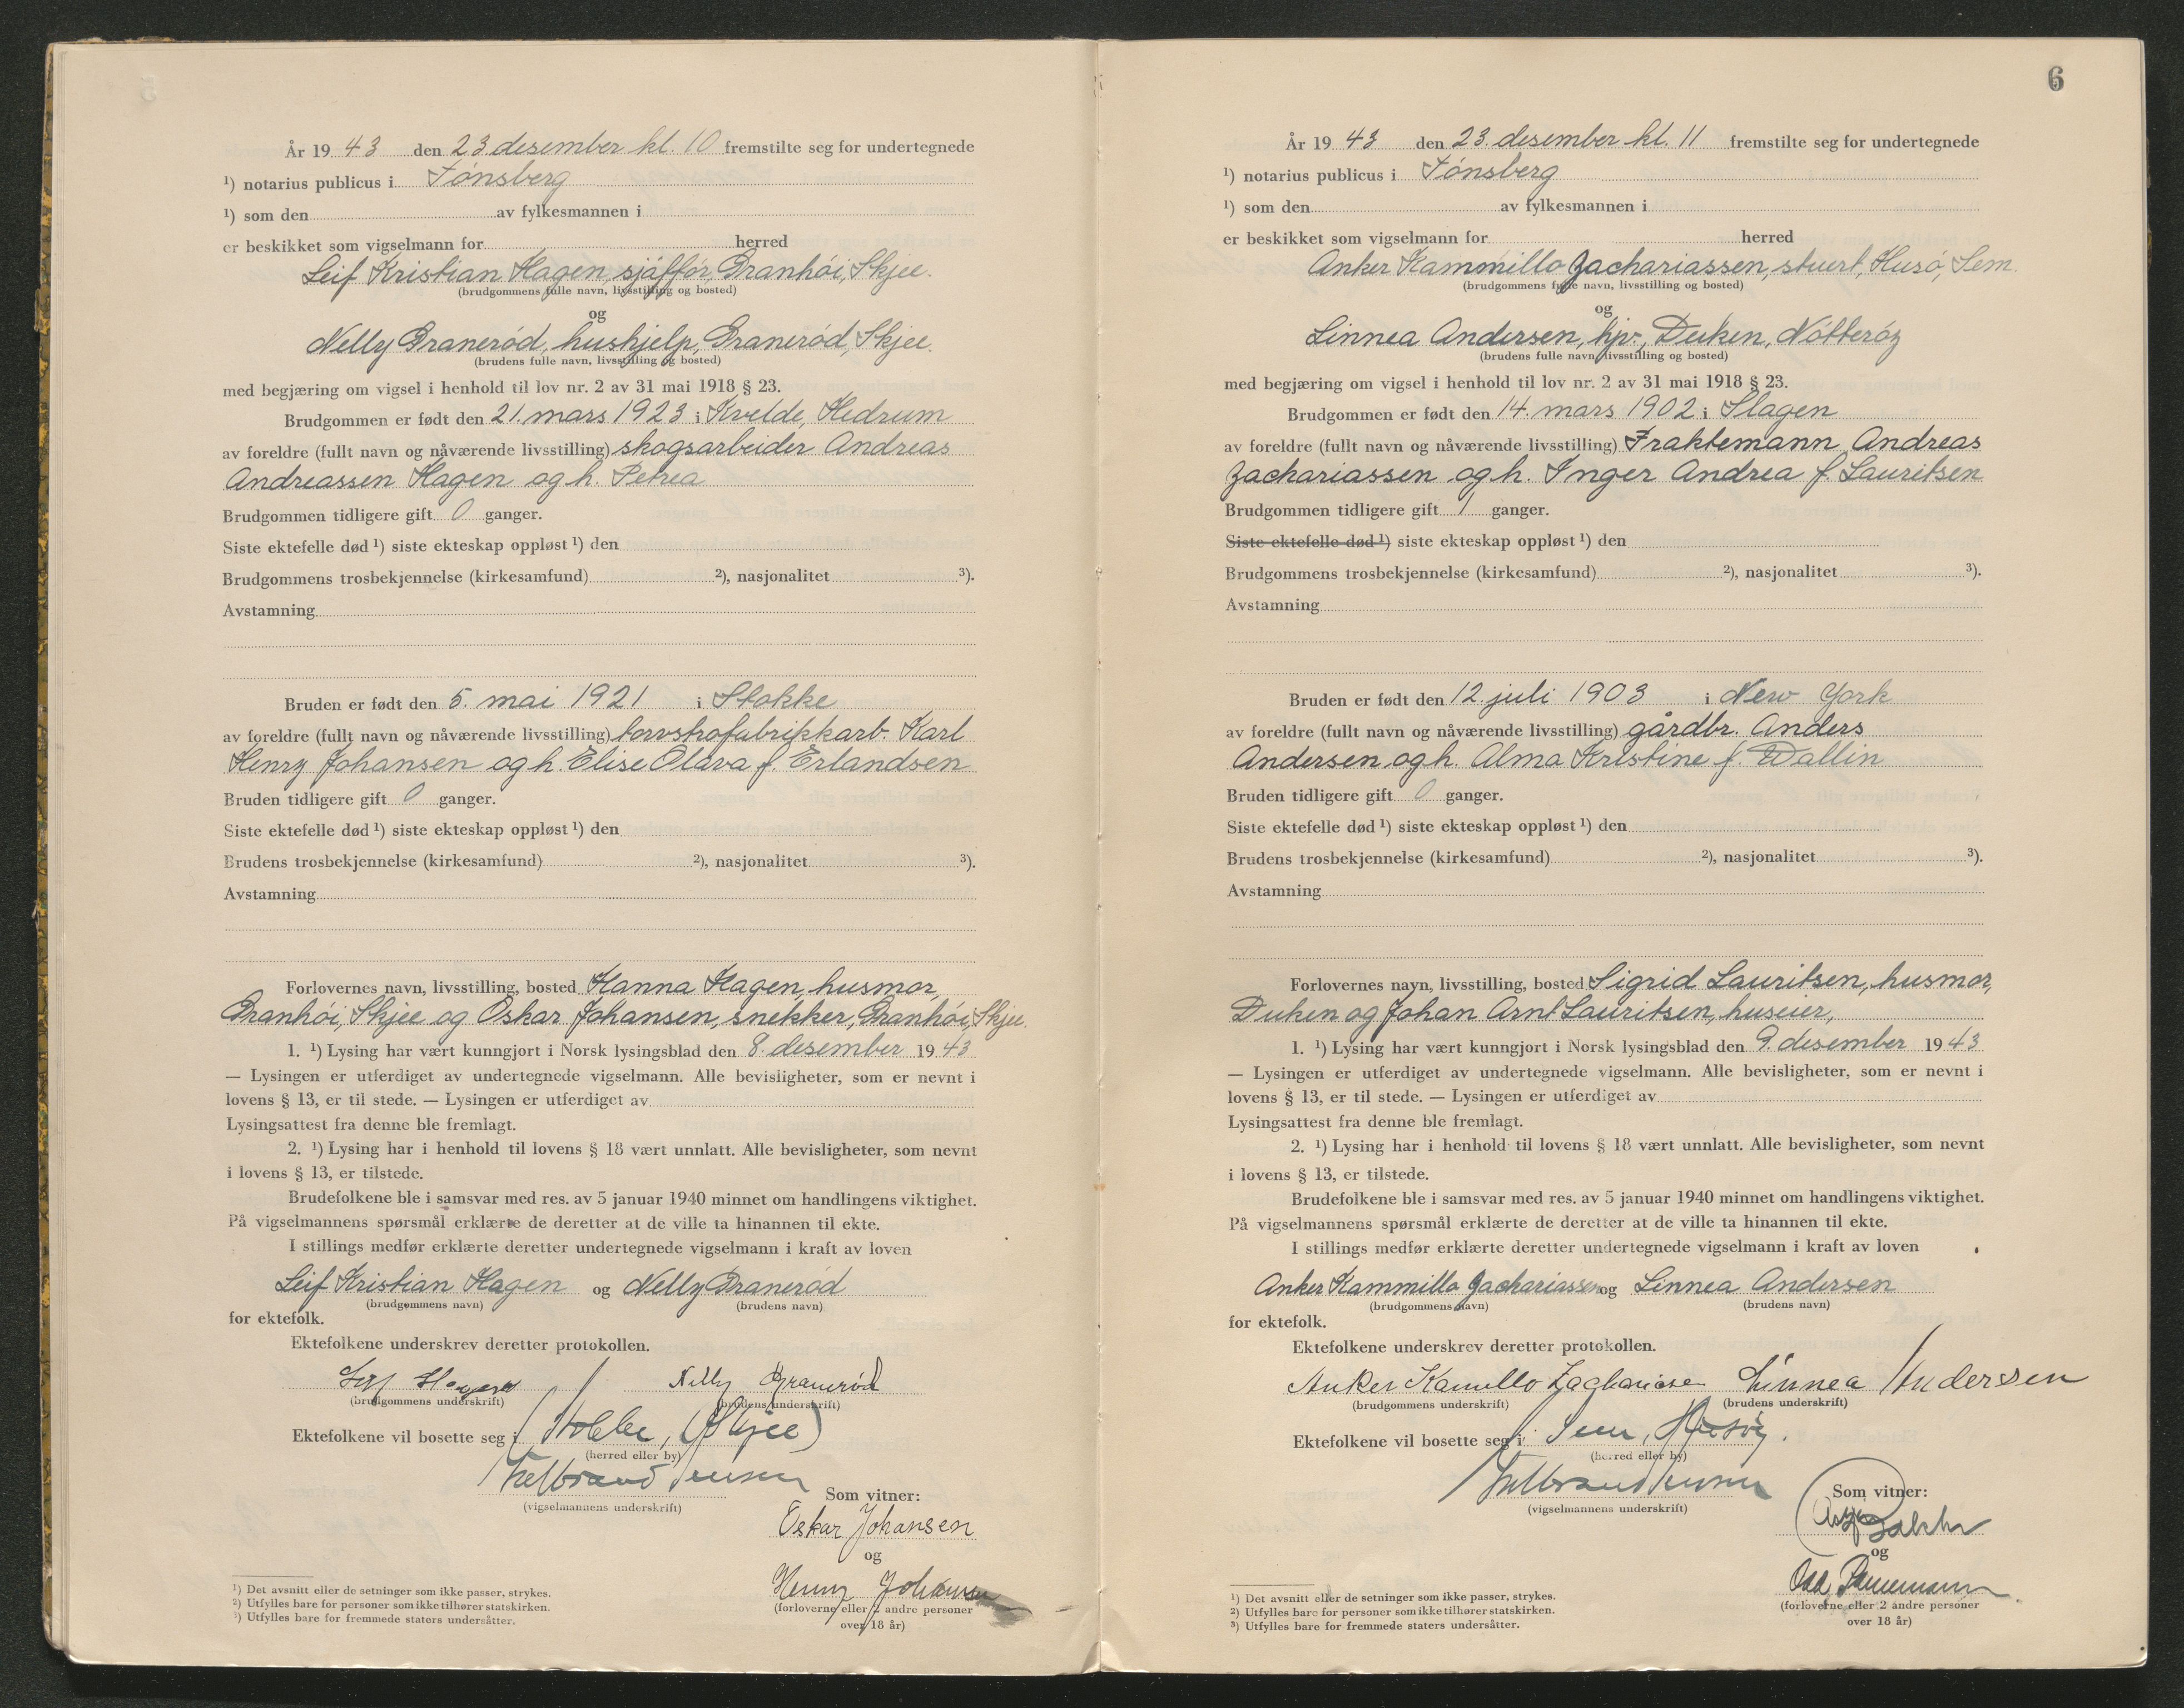 År 19 43 den 23 desember kl. 10 fremstilte seg for undertegnede
¹) notarius publicus i Tønsberg
¹) som den av fylkesmannen i
er beskikket som vigselmann for herred
Leif Kristian Hagen, sjåffør, Granhøi, Skjee.
(brudgommens fulle navn, livsstilling og bosted)
og
Nelly Granerød, hushjelp, Granerød, Skjee.
(brudens fulle navn, livsstilling og bosted)
med begjæring om vigsel i henhold til lov nr. 2 av 31 mai 1918 § 23.
Brudgommen er født den 21. mars 1923 i Kvelde, Hedrum
av foreldre (fullt navn og nåværende livsstilling) skogsarbeider Andreas
Andreassen Hagen og h. Petrea
Brudgommen tidligere gift 0 ganger.
Siste ektefelle død ¹) siste ekteskap oppløst ¹) den
Brudgommens trosbekjennelse (kirkesamfund) ²), nasjonalitet ³).
Avstamning
Bruden er født den 5. mai 1921 i Stokke
av foreldre (fullt navn og nåværende livsstilling) torvstrøfabrikkarb. Karl
Henry Johansen og h. Elise Olava f. Erlandsen
Bruden tidligere gift 0 ganger.
Siste ektefelle død ¹) siste ekteskap oppløst ¹) den
Brudens trosbekjennelse (kirkesamfund) ²), nasjonalitet ³).
Avstamning
Forlovernes navn, livsstilling, bosted Hanna Hagen, husmor,
Granhøi, Skjee og Oskar Johansen, snekker, Granhøi, Skjee.
1. ¹) Lysing har vært kunngjort i Norsk lysingsblad den 8. desember 19 43
— Lysingen er utferdiget av undertegnede vigselmann. Alle bevisligheter, som er nevnt i
lovens § 13, er til stede. — Lysingen er utferdiget av
Lysingsattest fra denne ble fremlagt.
2. ¹) Lysing har i henhold til lovens § 18 vært unnlatt. Alle bevisligheter, som nevnt
i lovens § 13, er tilstede.
Brudefolkene ble i samsvar med res. av 5 januar 1940 minnet om handlingens viktighet.
På vigselmannens spørsmål erklærte de deretter at de ville ta hinannen til ekte.
I stillings medfør erklærte deretter undertegnede vigselmann i kraft av loven
Leif Kristian Hagen og Nelly Granerød
(brudgommens navn) (brudens navn)
for ektefolk.
Ektefolkene underskrev deretter protokollen.
Leif Hagen Nelly Granerød
(brudgommens underskrift) (brudens underskrift)
Ektefolkene vil bosette seg i Stokke, (Skjee)
(herred eller by)
(vigselmannens underskrift)
Som vitner:
Oskar Johansen
og
Henry Johansen
(forloverne eller 2 andre personer
over 18 år)
¹) Det avsnitt eller de setninger som ikke passer, strykes.
²) Utfylles bare for personer som ikke tilhører statskirken.
³) Utfylles bare for fremmede staters undersåtter.
6
År 19 43 den 23. desember kl. 11 fremstilte seg for undertegnede
¹) notarius publicus i Tønsberg
¹) som den av fylkesmannen i
er beskikket som vigselmann for herred
Anker Kammillo Zachariassen, stuert, Husø, Sem.
(brudgommens fulle navn, livsstilling og bosted)
og
Linnea Andersen, hjv., Duken, Nøtterøy
(brudens fulle navn, livsstilling og bosted)
med begjæring om vigsel i henhold til lov nr. 2 av 31 mai 1918 § 23.
Brudgommen er født den 14. mars 1902 i Slagen
av foreldre (fullt navn og nåværende livsstilling) Fraktemann Andreas
Zachariassen og h. Inger Andrea f. Lauritsen
Brudgommen tidligere gift 1 ganger.
Siste ektefelle død ¹) siste ekteskap oppløst ¹) den
Brudgommens trosbekjennelse (kirkesamfund) ²), nasjonalitet ³).
Avstamning
Bruden er født den 12. juli 1903 i New York
av foreldre (fullt navn og nåværende livsstilling) gårdbr. Anders
Andersen og h. Alma Kristine f. Wallin
Bruden tidligere gift 0 ganger.
Siste ektefelle død ¹) siste ekteskap oppløst ¹) den
Brudens trosbekjennelse (kirkesamfund) ²), nasjonalitet ³).
Avstamning
Forlovernes navn, livsstilling, bosted Sigrid Lauritsen, husmor,
Duken og Johan Arnt Lauritsen, huseier,
1. ¹) Lysing har vært kunngjort i Norsk lysingsblad den 9. desember 19 43
— Lysingen er utferdiget av undertegnede vigselmann. Alle bevisligheter, som er nevnt i
lovens § 13, er til stede. — Lysingen er utferdiget av
Lysingsattest fra denne ble fremlagt.
2. ¹) Lysing har i henhold til lovens § 18 vært unnlatt. Alle bevisligheter, som nevnt
i lovens § 13, er tilstede.
Brudefolkene ble i samsvar med res. av 5 januar 1940 minnet om handlingens viktighet.
På vigselmannens spørsmål erklærte de deretter at de ville ta hinannen til ekte.
I stillings medfør erklærte deretter undertegnede vigselmann i kraft av loven
Anker Kammillo Zachariassen og Linnea Andersen
(brudgommens navn) (brudens navn)
for ektefolk.
Ektefolkene underskrev deretter protokollen.
Anker Kamillo Zachariase Linnea Andersen
(brudgommens underskrift) (brudens underskrift)
Ektefolkene vil bosette seg i Sem, Husøy.
(herred eller by)
(vigselmannens underskrift)
Som vitner:
og
(forloverne eller 2 andre personer
over 18 år)
¹) Det avsnitt eller de setninger som ikke passer, strykes.
²) Utfylles bare for personer som ikke tilhører statskirken.
³) Utfylles bare for fremmede staters undersåtter.